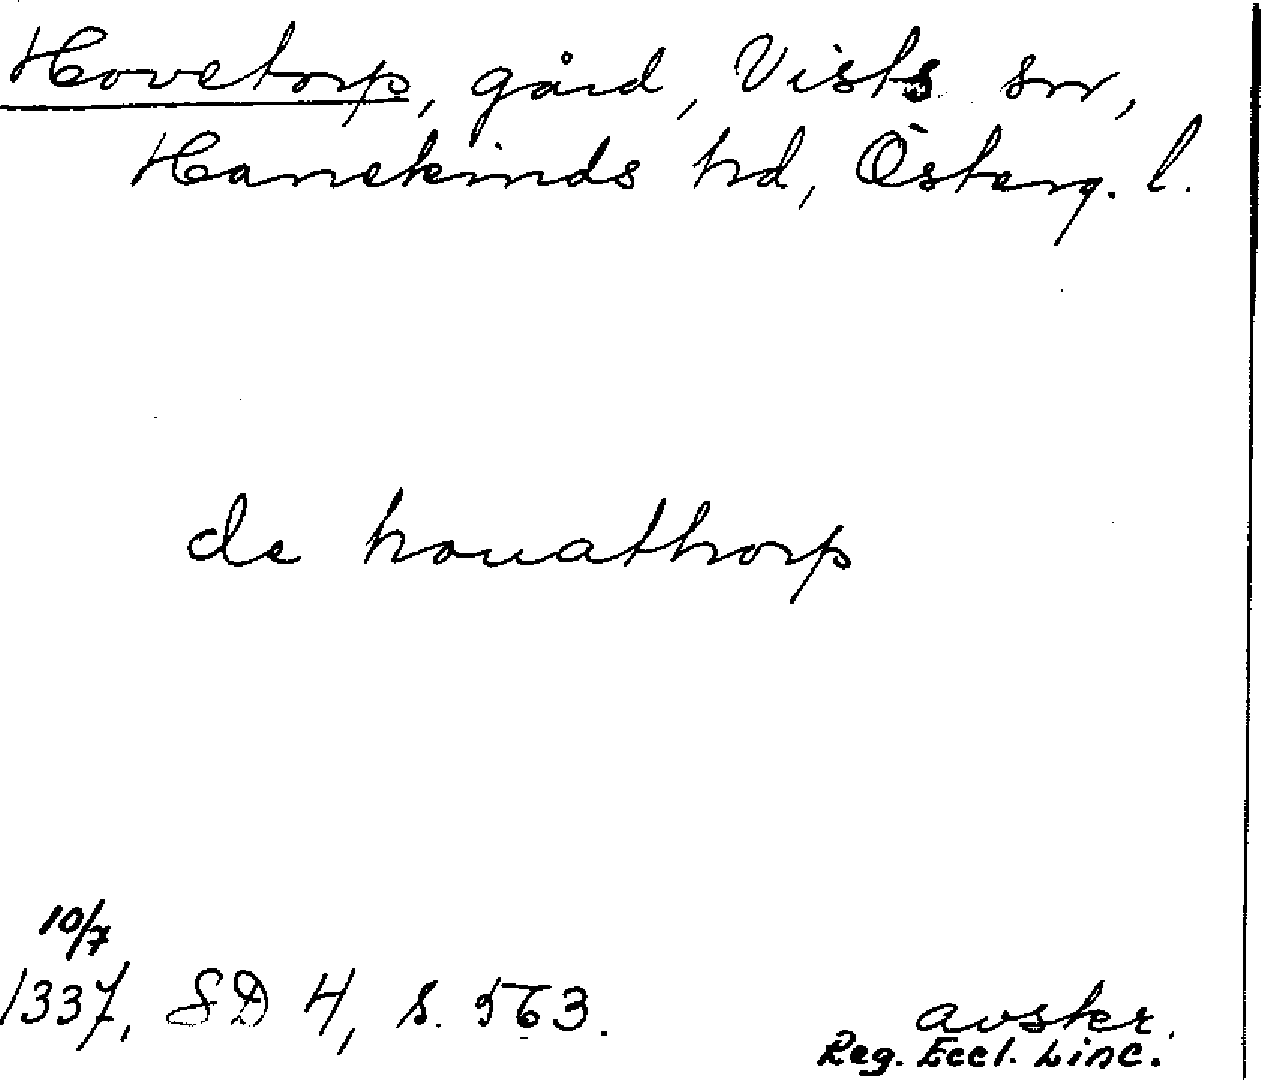 Hovetorp, gård, Vists sn,
Hanekinds hd, Österg. l.
de houathorp
10/7
1337, SD 4, s. 563.
avskr.
Reg. Eccl. Linc.